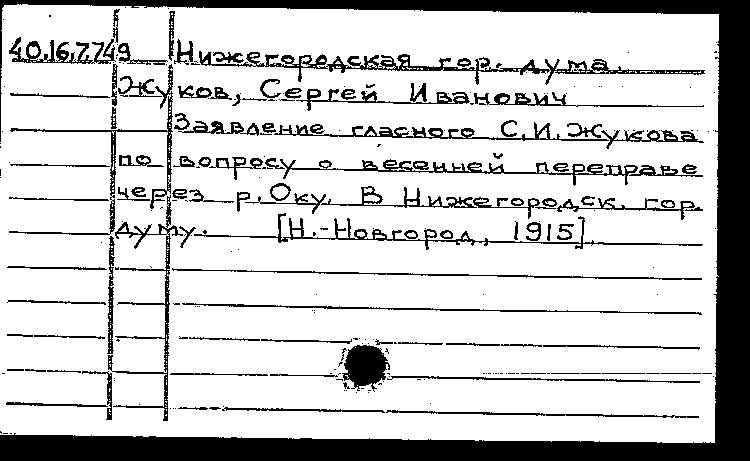 40.16.7.749 Нижегородская гор. дума.
Жуков, Сергей Иванович
Заявление гласного С.И.Жукова
по вопросу о весенней переправе
через р.Оку. В Нижегородск. гор.
думу. [Н.-Новгород, 1915].